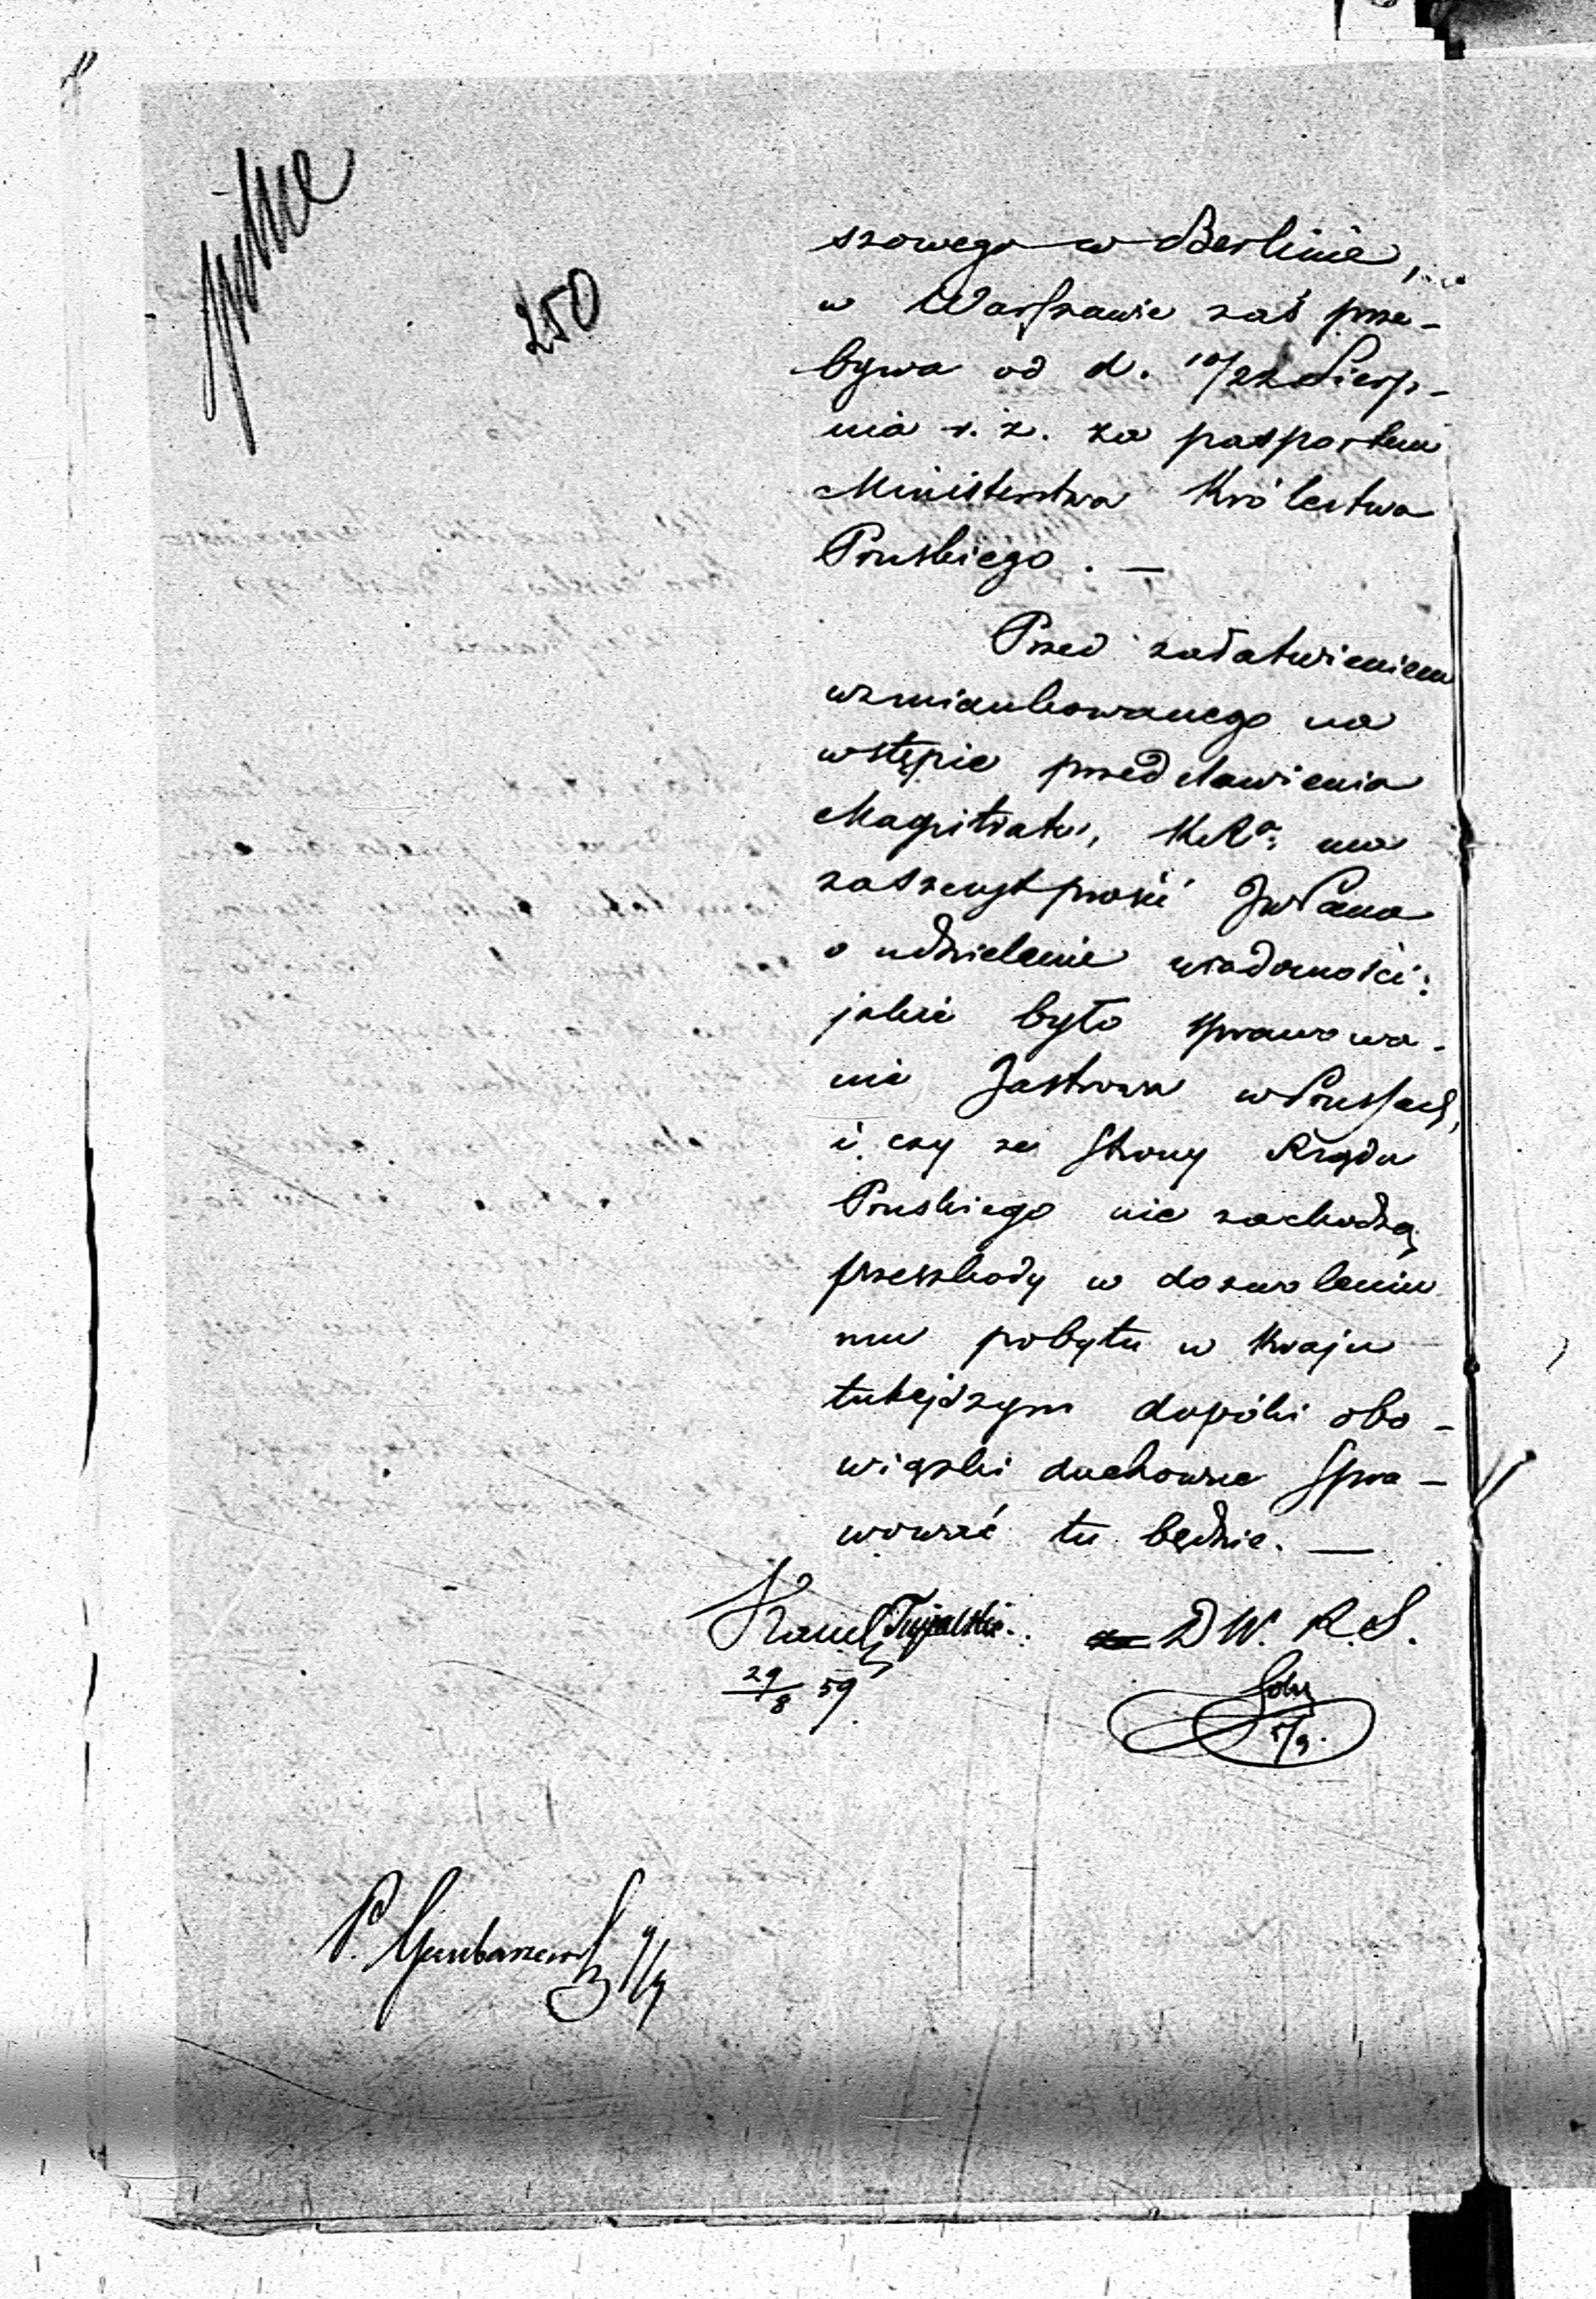 pilne
250
szowego w Berlinie,
w Warszawie zaś prze-
bywa od d. 10/22 Sierp-
nia r. z. za pasportem
Ministerstwa Królestwa
Pruskiego. —
Przed załatwieniem
wzmiankowanego na
wstępie przedstawienia
Magistratu, KR
zaszczyt prosić JWPana
o udzielenie wiadomości:
jakie było sprawowa-
nie Jastrowa w Prusach,
i czy ze strony Rządu
Pruskiego nie zachodzą
przeszkody w dozwoleniu
mu pobytu w Kraju
tutejszym dopóki obo-
wiązki duchowne spra-
wować tu będzie. —
D W. R. S.
29/8 59
5/9.
P. 9/9